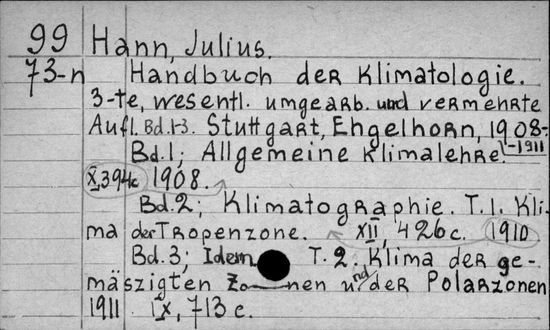 99 Hann, Julius.
73-n Handbuch der Klimatologie.
3-te, wesentl. umgearb. und vermehrte
Aufl. Bd.1-3. Stuttgart, Engelhorn, 1908-
-1911
Bd.1; Allgemeine Klimalehre.
X, 394c 1908.
Bd.2; Klimatographie. T.1. Kli-
ma der Tropenzone. XII, 426c. 1910
Bd.3; Idem T.2. Klima der ge-
mäszigten Zonen und der Polarzonen
1911. IX, 713 c.